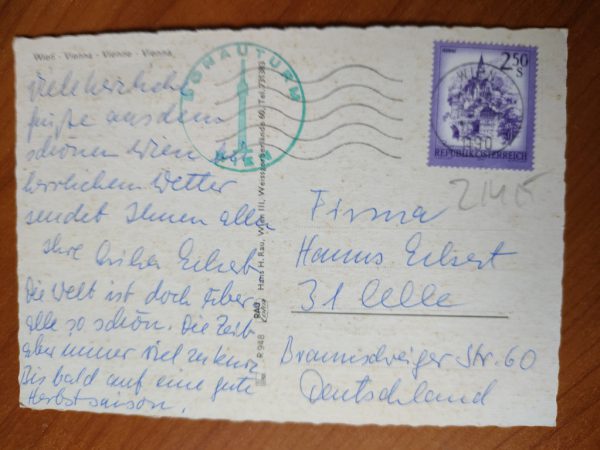 Wien - Vienna - Vienne - Vienna
Viele herzliche
Grüße aus dem
schönen Wien bei
herrlichem Wetter
sendet Ihnen allen
Ihre Eckert
Die Welt ist doch über-
alle so schön. Die Zeit
aber immer viel zu kurz
Bis bald auf eine gute
Herbstsaison.
DONAUTURM
WIEN
R 948
RAU
Hans H. Rau, Wien III, Weissgerberlände 60, Tel. 731383
WIEN
1090
2.50
S
REPUBLIK ÖSTERREICH
Firma
Hanns Eckert
31 Celle
Braunschweiger Str. 60
Deutschland